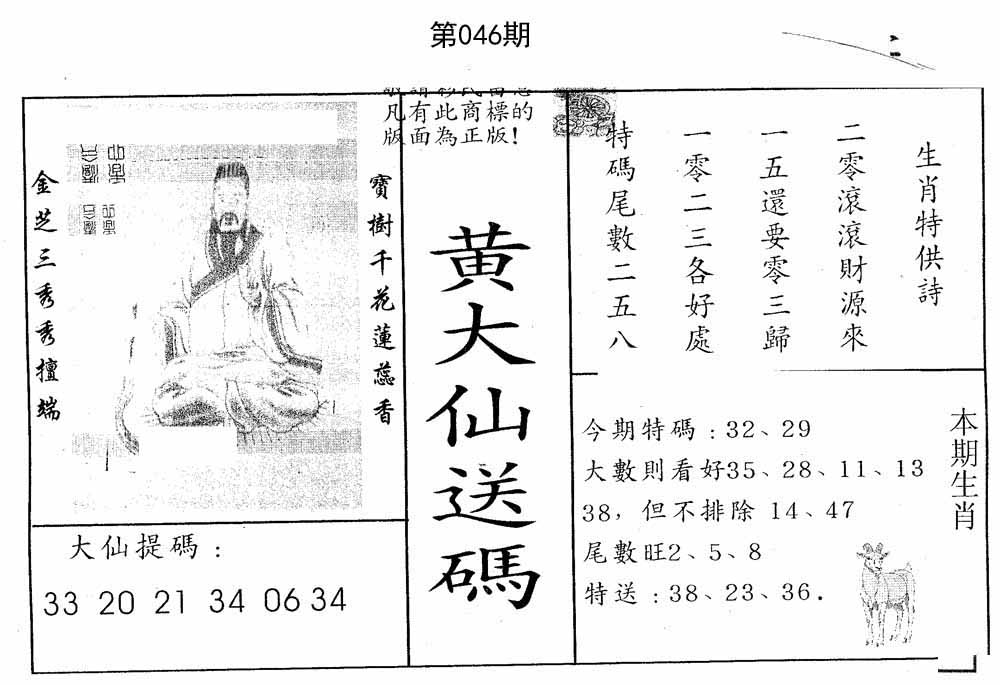 第046期
凡有此商標的
版面為正版!
金芝三秀秀擅端
寶樹千花蓮蕊香
大仙提碼:
33 20 21 34 06 34
黄大仙送碼
生肖特供詩
二零滾滾財源來
一五還要零三歸
一零二三各好處
特碼尾數二五八
今期特碼:32、29
大數則看好35、28、11、13
38,但不排除 14、47
尾數旺2、5、8
特送:38、23、36.
本期生肖